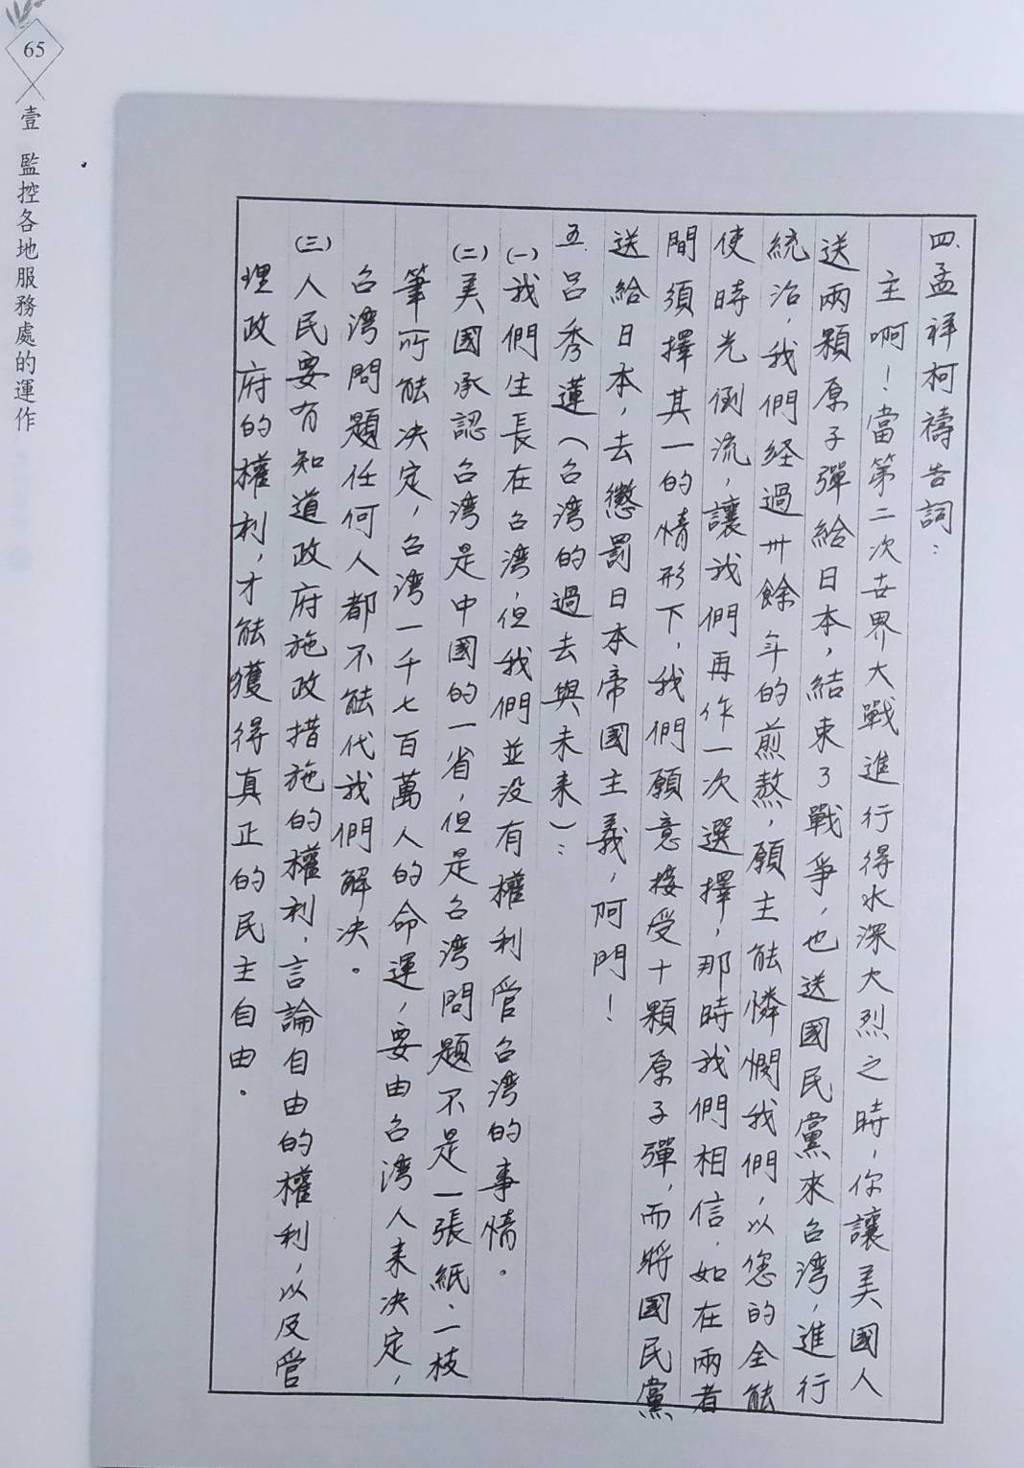 65
壹 監控各地服務處的運作
四.孟祥柯禱告詞：
主啊！當第二次世界大戰進行得水深火烈之時，你讓美國人
送兩顆原子彈給日本，結束了戰爭，也送國民黨來台湾，進行
統治，我們経過卅餘年的煎熬，願主能憐憫我們，以您的全能
使時光倒流，讓我們再作一次選擇，那時我們相信．如在兩者
間須擇其一的情形下，我們願意接受十顆原子彈，而將國民黨
送給日本，去懲罰日本帝國主義，阿門！
五.呂秀蓮（台湾的過去與未来）：
(一)我們生長在台湾，但我們並没有權利管台湾的事情。
(二)美國承認台湾是中國的一省，但是台湾問題不是一張紙、一枝
筆所能決定，台湾一千七百萬人的命運，要由台湾人来決定，
台湾問題任何人都不能代我們解決。
(三)人民要有知道政府施政措施的權利，言論自由的權利，以及管
理政府的權利，才能獲得真正的民主自由。